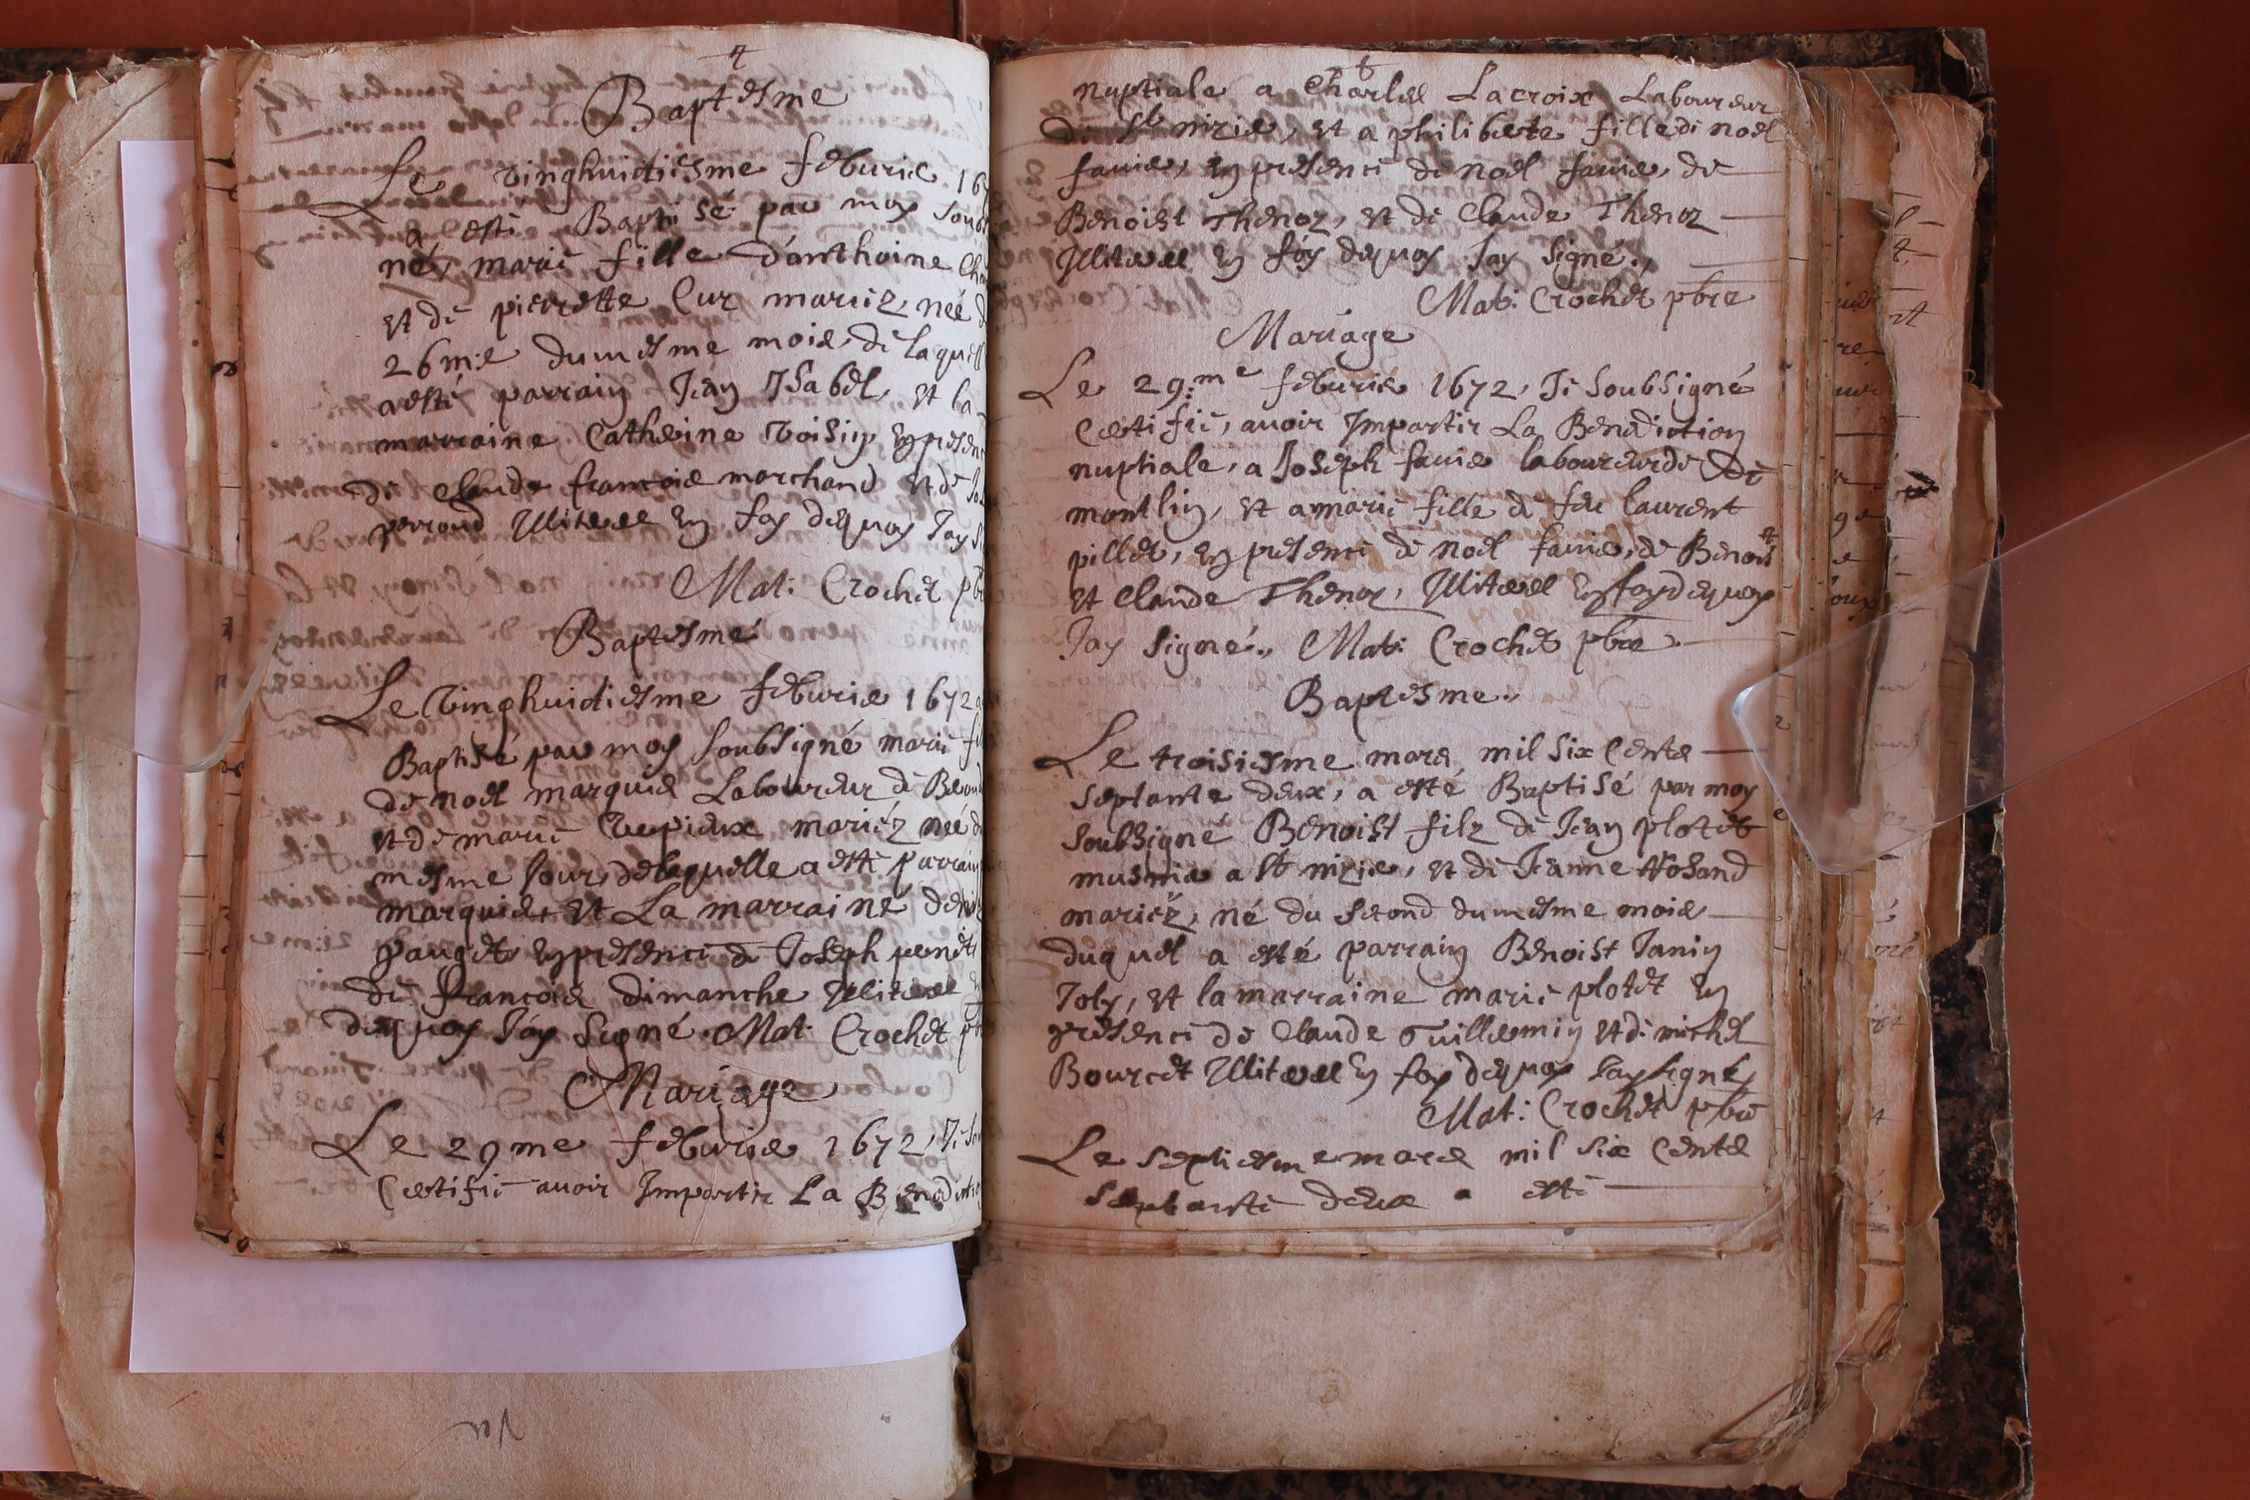 Baptesme
Le vinghuictiesme feburier 167
a esté Baptisé par moy soub
né, marie fille d'anthoine Cha
et de pierrette Cur mariez, née d
26mie dumesme mois, de laquell
a esté parrain Jean Isabel, et la
marraine Catherine Voisin, en presenc
de Claude francois marchand et de
perroud tesmoins en foy dequoy J'ay
Mat: Crochet pb
Baptesme
Le Vinghuictiesme feburier 1672
Baptisé par moy soubsigné marie fi
de noel marquis Laboureur de
et de marie mariez née d
mesme Jour, delaquelle a esté parrain
marquis, et La marraine
gauget, en presence de Joseph
de francois dimanche
dequoy J'ay signé. Mat: Crochet pb
Mariage
Le 29me feburier 1672, Je so
Certifie avoir Impartir La Benedictio
nuptiale a Charles Lacroix Laboureur
de St nizier, et a philiberte fille de noel
favier, en presence de noel favier, de
Benoist Thenoz, et de Claude Thenoz
en foy dequoy J'ay signé.,
Mat: Crochet pbre
Mariage
Le 29:me feburier 1672, Je soubsigné
Certifie, avoir Impartir La Benediction
nuptiale, a Joseph favier laboureur de
montlin, et a marie fille de feu laurent
pillet, en presence de noel favier, de Benoist
et Claude Thenoz, en foy dequoy
J'ay signé., Mat: Crochet pbre
Baptesme.,
Le troisiesme mars, mil six Cents
septante deux, a esté Baptisé par moy
soubsigné Benoist filz de Jean plotet
musnier a St nizier, et de Jeanne
mariez, né du second dumesme mois
duquel a esté parrain Benoist Janin
Joly, et la marraine marie plotet en
presence de Claude Guillemin et de michel
Bourcet en foy dequoy J'ay signé,
Mat: Crochet pbre
Le septiesme mars mil six Cents
septante deux a esté